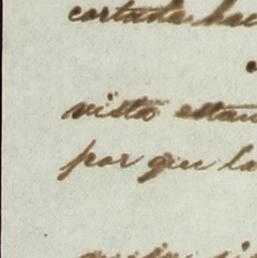 cortada hac
vista estan
por que la